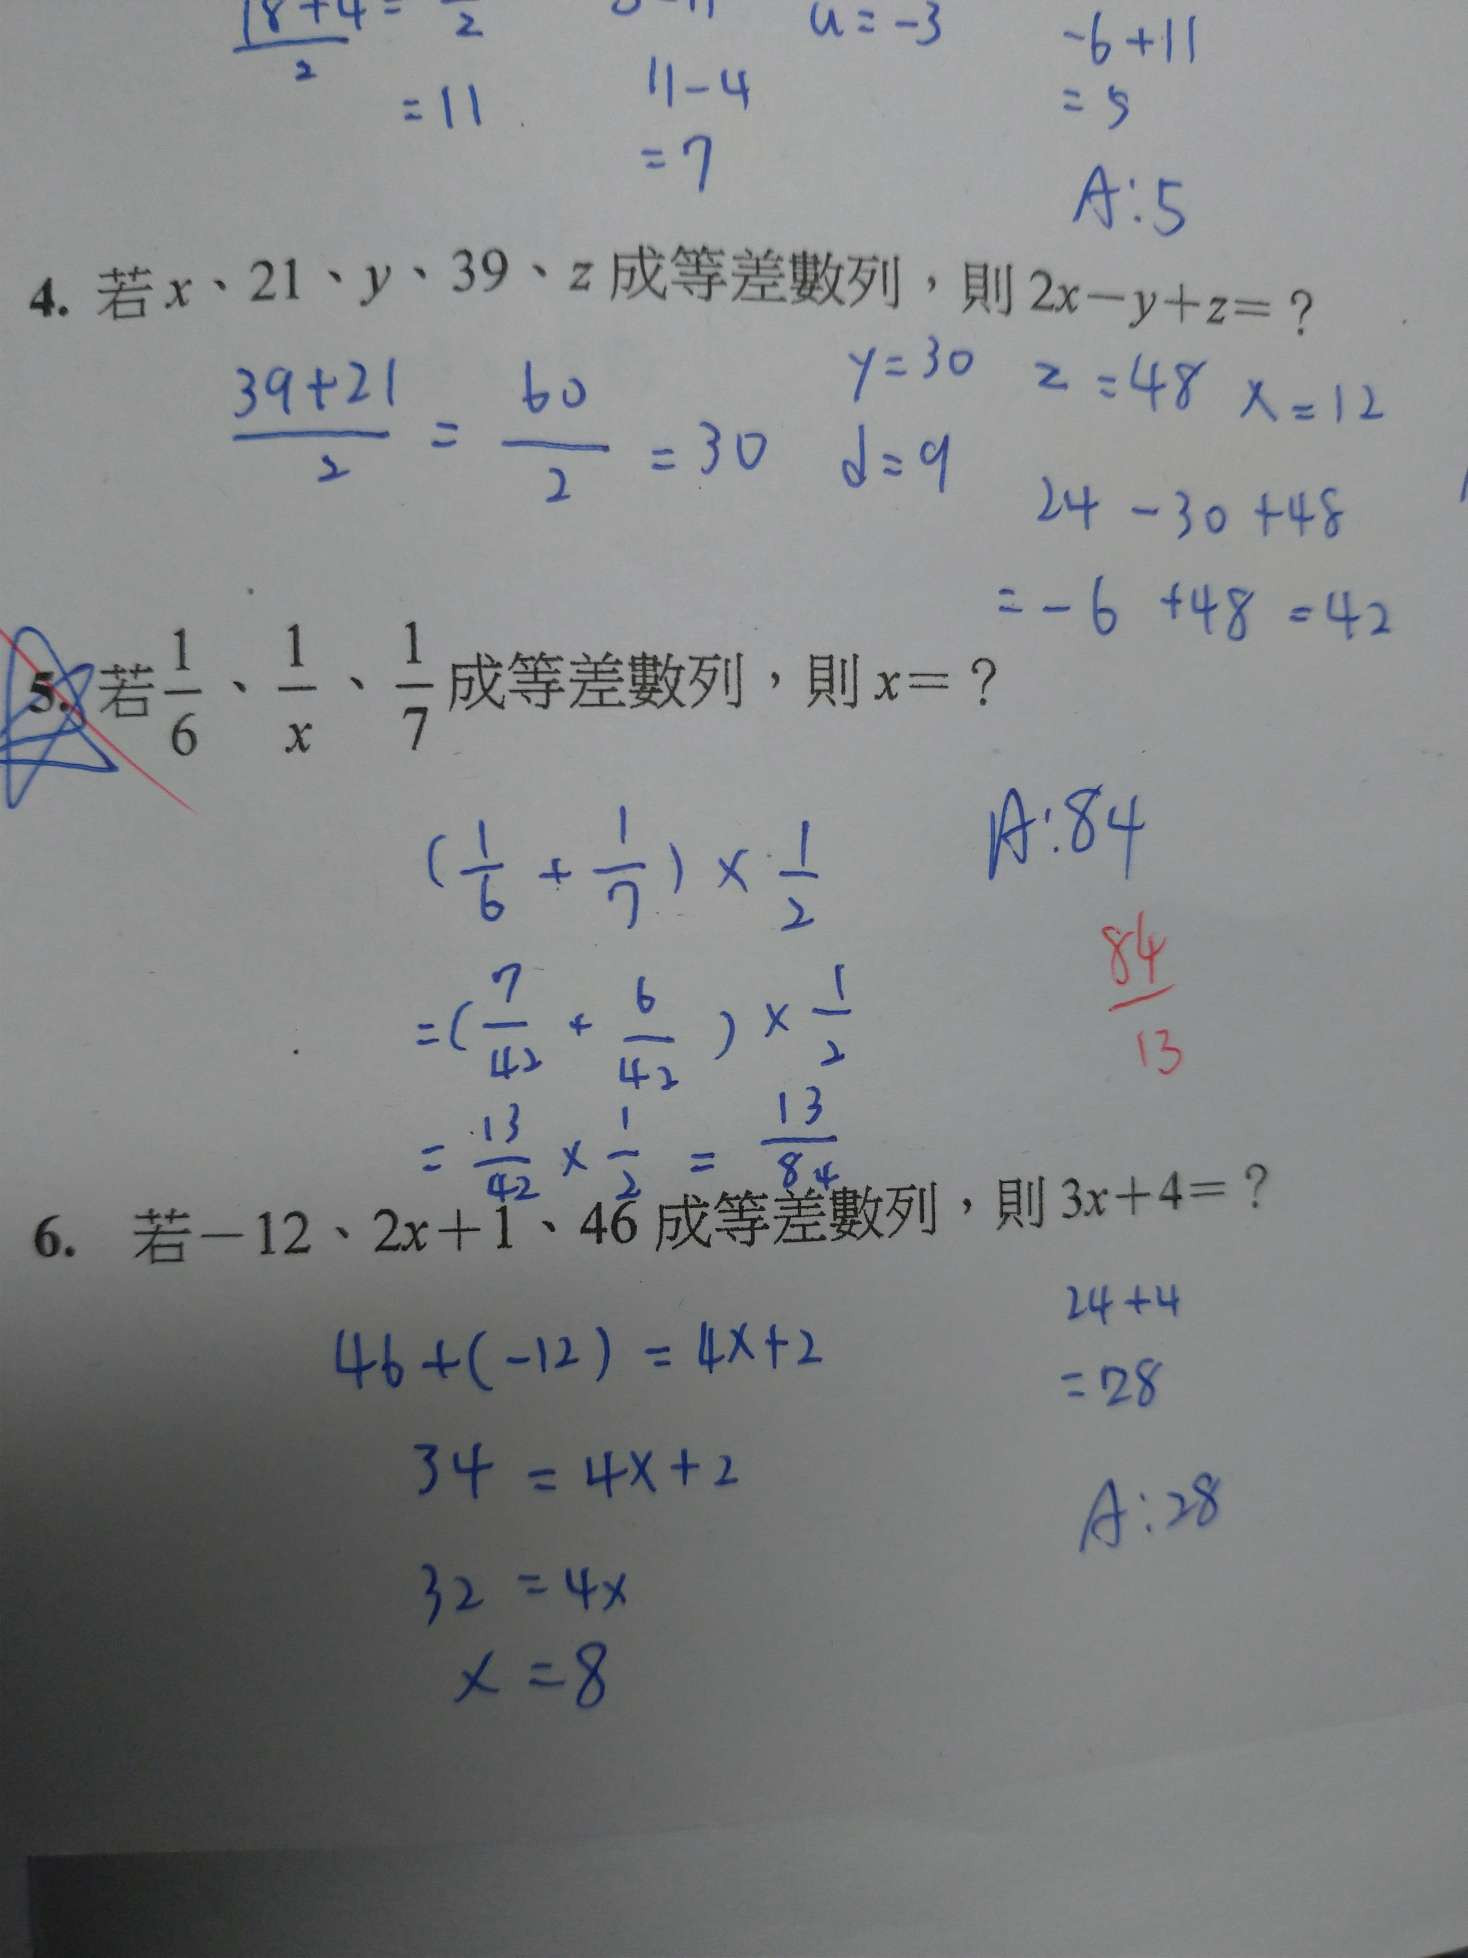 18+4 = /2
2
= 11
11-4
= 7
u = -3
-6+11
= 5
A:5
4. 若x、21、y、39、z成等差數列,則2x-y+z=?
39+21/2 = 60/2 = 30
y=30 z=48 x=12
d=9
24-30+48
=-6+48=42
5. 若1/6、1/x、1/7成等差數列,則x=?
(1/6+1/7)×1/2
A:84
=(7/42+6/42)×1/2
84/13
=13/42×1/2=13/84
6. 若-12、2x+1、46成等差數列,則3x+4=?
46+(-12)=4x+2
24+4
=28
34=4x+2
A:28
32=4x
x=8